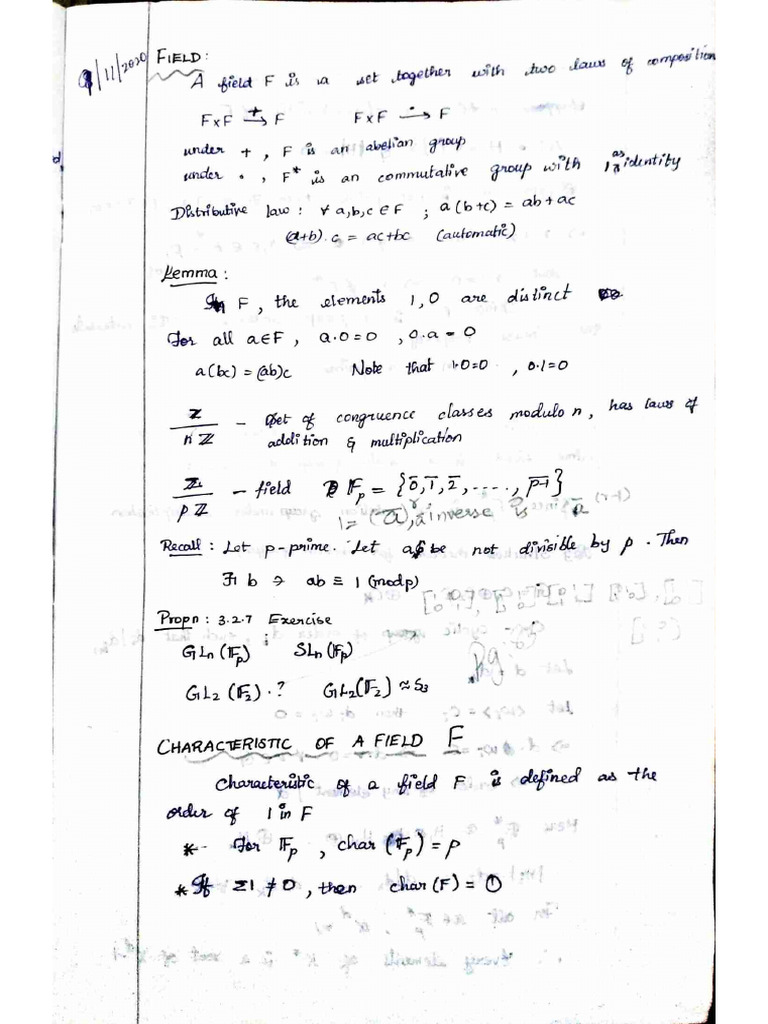 8/11/2020 FIELD:
A field F is a set together with two laws of composition
F×F →⁺ F     F×F →˙ F
under +, F is an abelian group
under ·, F* is an commutative group with 1 as identity
Distributive law: ∀ a,b,c ∈ F ; a(b+c) = ab+ac
(a+b).c = ac+bc (automatic)
Lemma:
In F, the elements 1,0 are distinct
For all a∈F, a.0=0, 0.a=0
a(bc)=(ab)c Note that 1.0=0, 0.1=0
ℤ/nℤ – Set of congruence classes modulo n, has laws of
addition & multiplication
ℤ/pℤ – field 𝔽p = {0̅,1̅,2̅,.....,p-1̅}
1=(a̅)ʳ, inverse is a̅^(r-1)
Recall: Let p-prime. Let a be not divisible by p. Then
∃ b ∋ ab ≡ 1 (modp)
Propn: 3.2.7 Exercise
GLn(𝔽p) ; SLn(𝔽p)
GL2(𝔽2).? GL2(𝔽2)≈S3
CHARACTERISTIC OF A FIELD F
Characteristic of a field F is defined as the
order of 1 in F
* For 𝔽p, char(𝔽p)=p
* If Σ1≠0, then char(F)=0